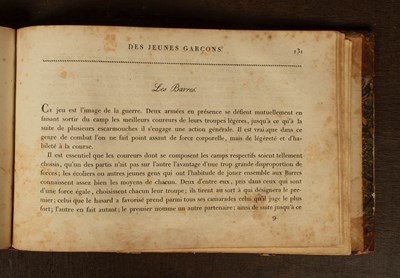 DES JEUNES GARÇONS.
131
Les Barres.
Ce jeu est l'image de la guerre. Deux armées en présence se défient mutuellement en
faisant sortir du camp les meilleurs coureurs de leurs troupes légères, jusqu'à ce qu'à la
suite de plusieurs escarmouches il s'engage une action générale. Il est vrai que dans ce
genre de combat l'on ne fait point assaut de force corporelle, mais de légèreté et d'ha-
bileté à la course.
Il est essentiel que les coureurs dont se composent les camps respectifs soient tellement
choisis, qu'un des partis n'ait pas sur l'autre l'avantage d'une trop grande disproportion de
forces; les écoliers ou autres jeunes gens qui ont l'habitude de jouer ensemble aux Barres
connaissent assez bien les moyens de chacun. Deux d'entre eux, pris dans ceux qui sont
d'une force égale, choisissent chacun leur troupe; ils tirent au sort à qui désignera le pre-
mier; celui que le hasard a favorisé prend parmi tous ses camarades celui qu'il juge le plus
fort; l'autre en fait autant; le premier nomme un autre partenaire: ainsi de suite jusqu'à ce
9.